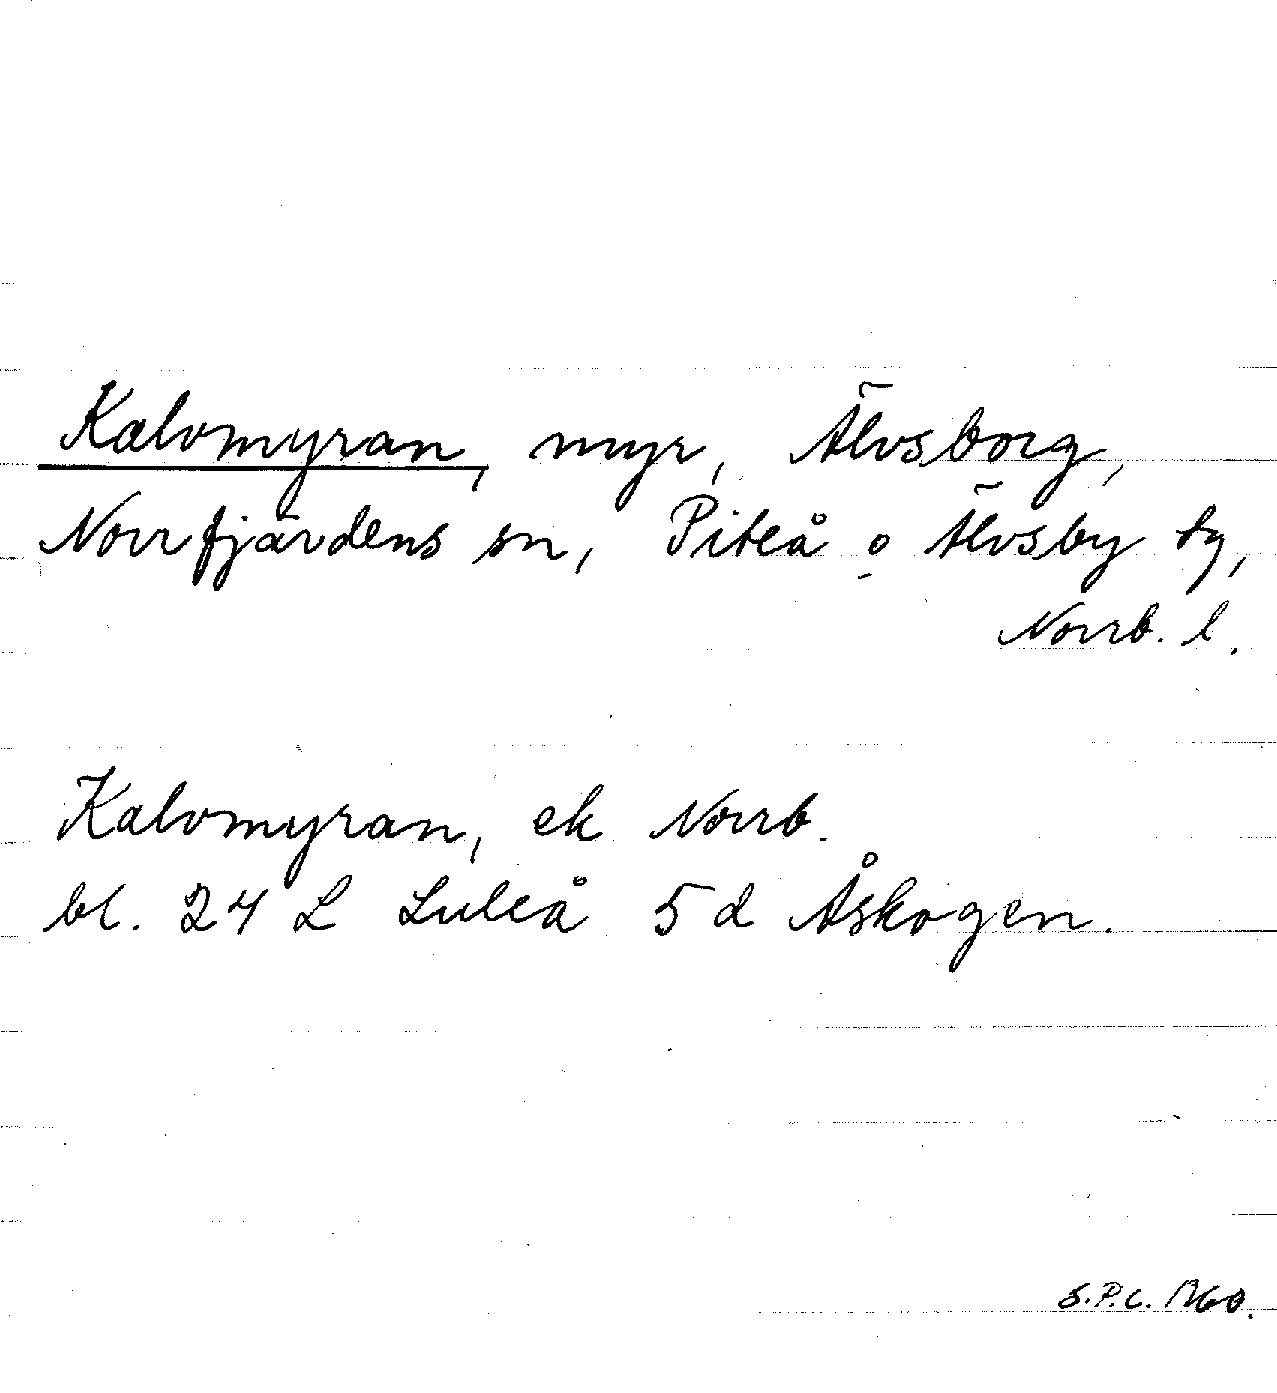 Kalvmyran, myr, Älvsborg,
Norrfjärdens sn, Piteå o Älvsby tg,
Norrb. l.
Kalvmyran, ek Norrb.
bl. 24 L Luleå 5 d Åskogen.
S.P.C.